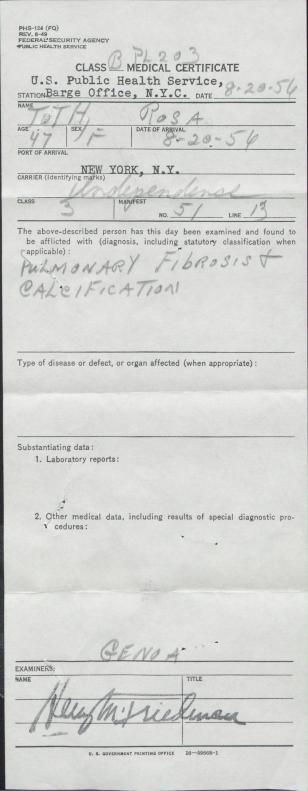 PHS-124 (FQ)
REV. 6-49
FEDERAL SECURITY AGENCY
PUBLIC HEALTH SERVICE
CLASS B PL203 MEDICAL CERTIFICATE
U.S. Public Health Service,
STATION Barge Office, N.Y.C. DATE 8-20-56
NAME
TOTH, ROSA
AGE SEX DATE OF ARRIVAL
47 F 8-20-56
PORT OF ARRIVAL
NEW YORK, N.Y.
CARRIER (Identifying marks)
Independence
CLASS MANIFEST
3 NO. 51 LINE 13
The above-described person has this day been examined and found to
be afflicted with (diagnosis, including statutory classification when
applicable) :
PULMONARY FIBROSIS &
CALCIFICATION
Type of disease or defect, or organ affected (when appropriate) :
Substantiating data :
1. Laboratory reports :
2. Other medical data, including results of special diagnostic pro-
cedures :
GENOA
EXAMINERS:
NAME TITLE
Henry M. Friedman
U. S. GOVERNMENT PRINTING OFFICE